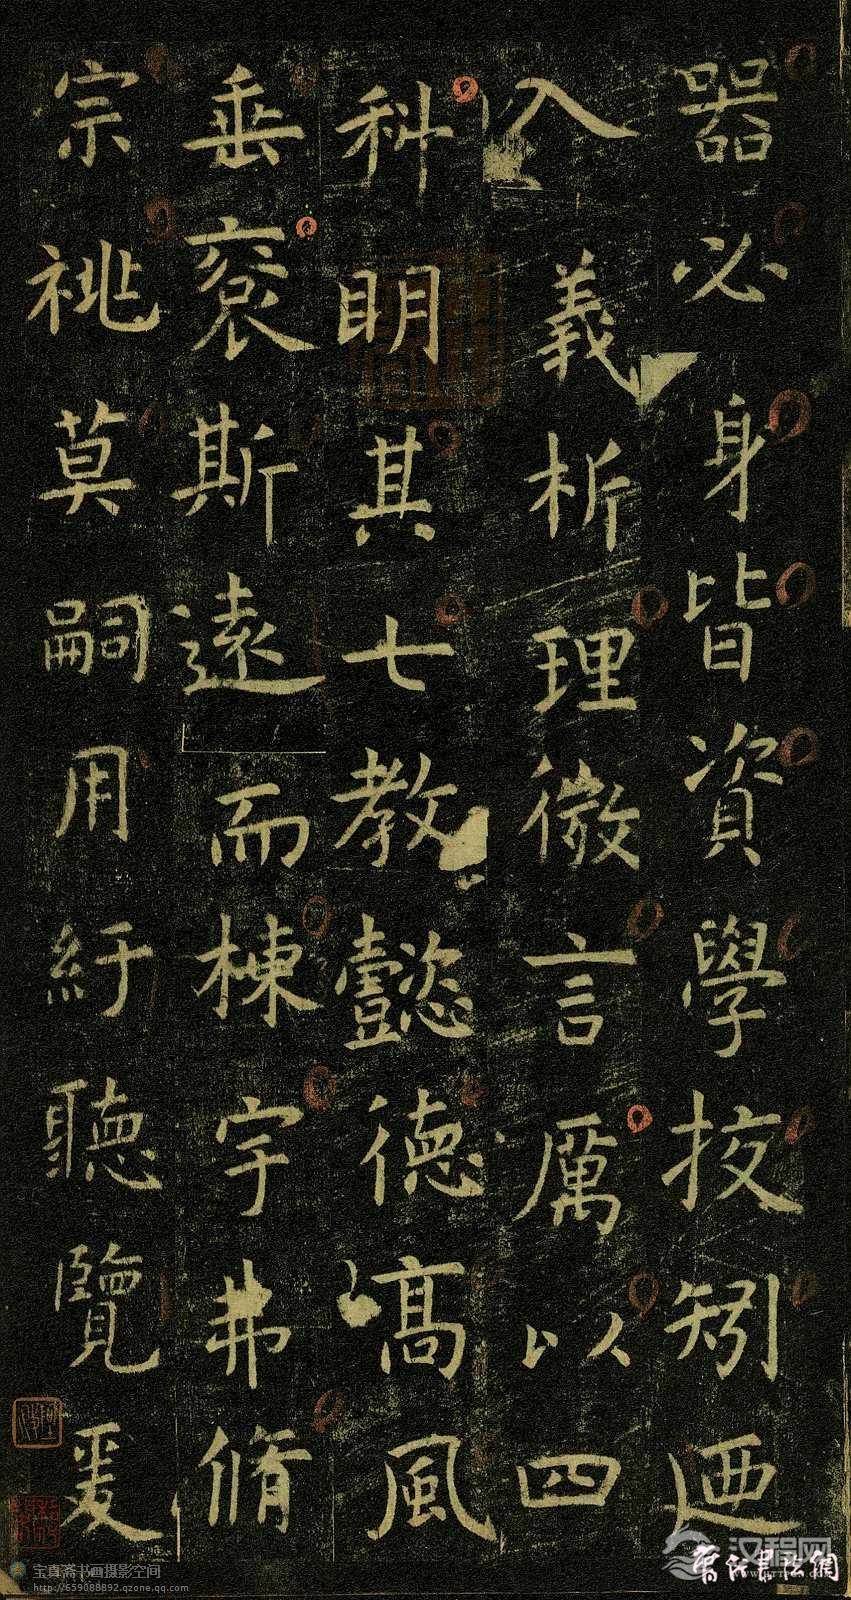 器必身皆資學挍矧迺
入義析理微言厲以四
科眀其七教懿德高風
垂裒斯遠而棟宇弗脩
宗祧莫嗣用紆聽覽爰
宝真斋书画摄影空间
http://659088892.qzone.qq.com
汉程网